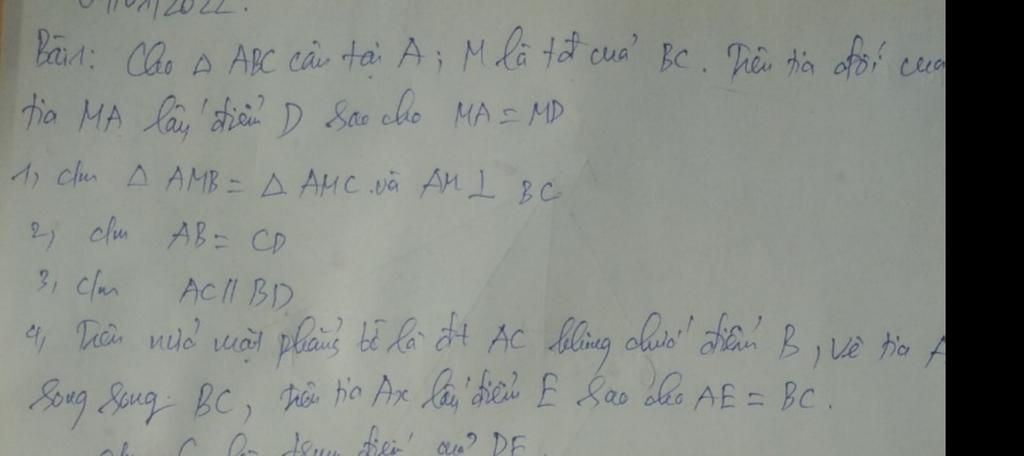 04/01/2022.
Bài 1: Cho △ ABC cân tại A; M là tđ của BC. Trên tia đối của
tia MA lấy điểm D sao cho MA = MD
1, c/m △ AMB = △ AMC và AM ⊥ BC
2, c/m AB = CD
3, c/m AC // BD
4, Trên nửa mặt phẳng bờ là đt AC không chứa điểm B, vẽ tia A
song song BC, trên tia Ax lấy điểm E sao cho AE = BC.
c/m C là trung điểm của DE